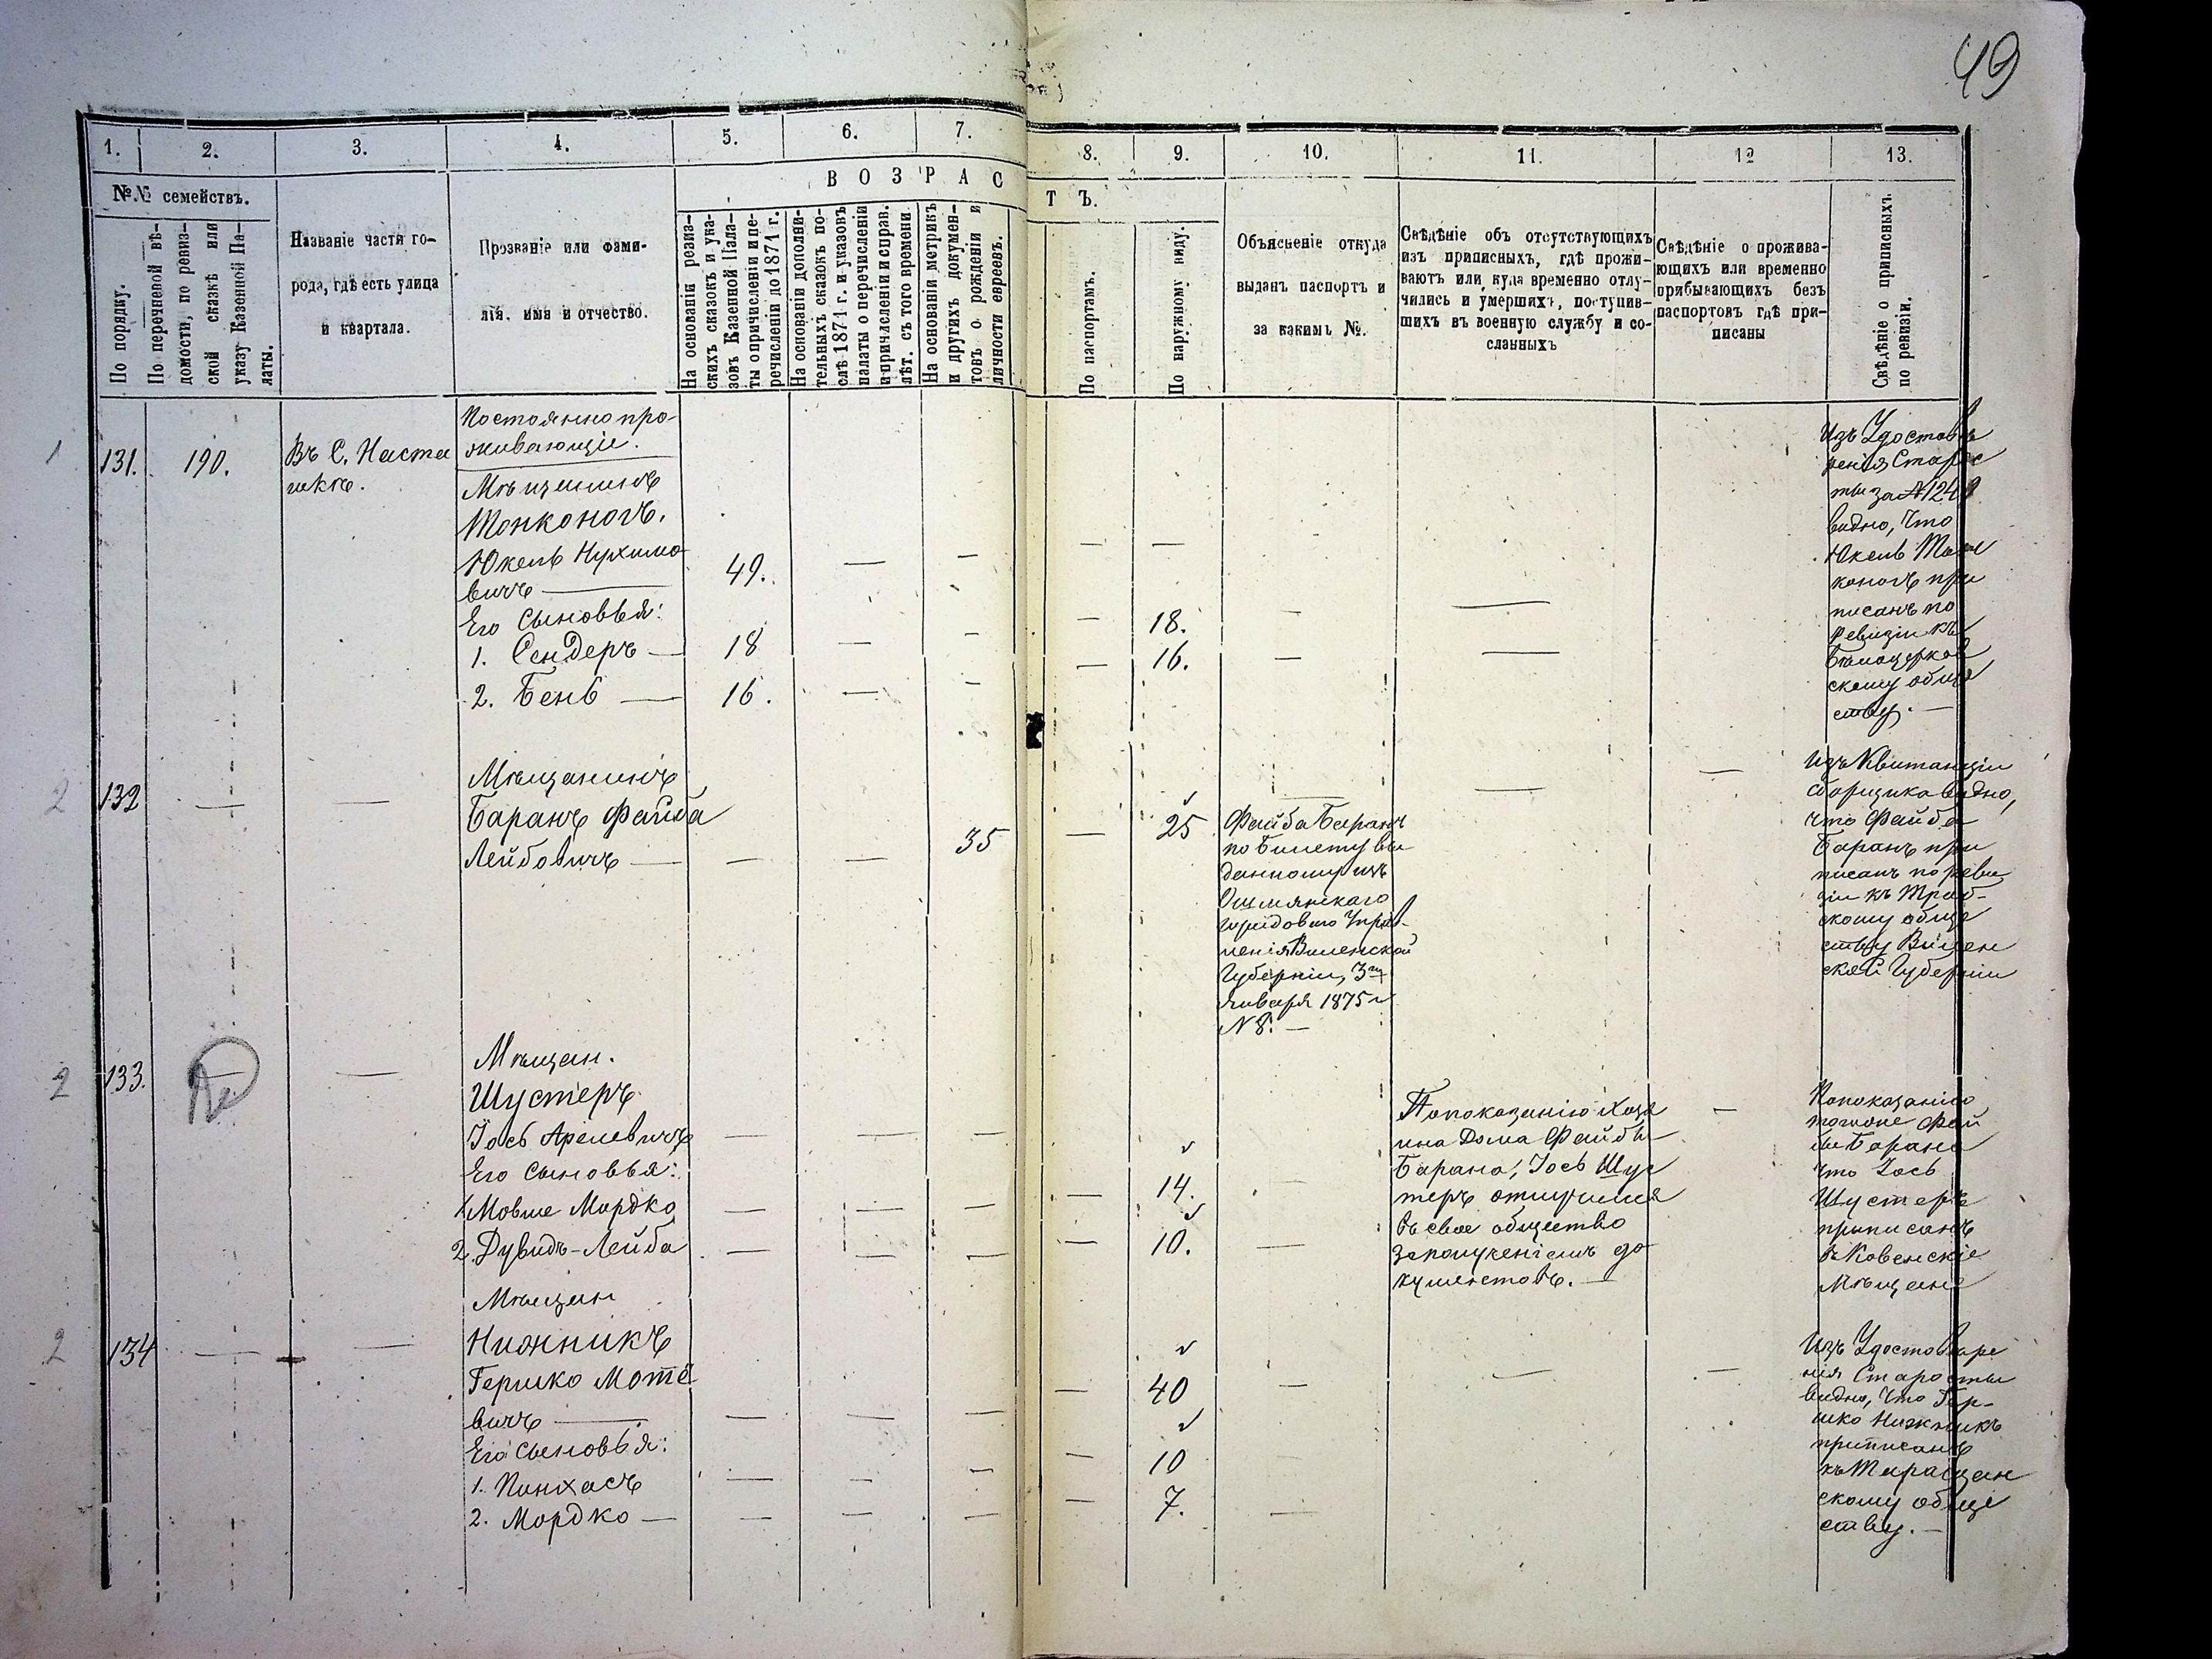 49
1. 2. 3. 4. 5. 6. 7. 8. 9. 10. 11. 12 13.
№№ семействъ.
По порядку.
По перечневой вѣ-
домости, по ревиз-
ской сказкѣ или
указу Казенной Па-
латы.
Названіе части го-
рода, гдѣ есть улица
и квартала.
Прозваніе или фами-
лія. имя и отчество.
В О З Р А С Т Ъ.
На основаніи ревиз-
скихъ сказокъ и ука-
зовъ Казенной Пала-
ты о причисленіи и пе-
речисленіи до 1871 г.
На основаніи дополни-
тельныхъ сказокъ по-
слѣ 1871 г. и указовъ
палаты о перечисленіи
и причисленіи и справ.
лѣт. съ того времени
На основаніи метрикъ
и другихъ докумен-
товъ о рожденіи и
личности евреевъ.
По паспортамъ.
По наружному виду.
Объясненіе откуда
выданъ паспортъ и
за какимъ №.
Свѣдѣніе объ отсутствующихъ
изъ приписныхъ, гдѣ прожи-
ваютъ или куда временно отлу-
чились и умершихъ, поступив-
шихъ въ военную службу и со-
сланныхъ
Свѣдѣніе о прожива-
ющихъ или временно
прибывающихъ безъ
паспортовъ гдѣ при-
писаны
Свѣдѣніе о приписныхъ
по ревизіи.
Постоянно про-
живающіе.
1 131. 190. Въ С. Наста
шкѣ.
Мѣщанинъ
Тонконогъ.
Юкель Нухимо
вичъ — 49. — — — —
Его Сыновья:
1. Сендеръ — 18 — — — 18. — —
2. Бень — 16. — — — 16. — —
Изъ Удостовѣ
ренія Старос
ты за №124
видно, что
Юкель Тон
коногъ при
писанъ по
Ревизіи къ
Бѣлоцерков
скому обще
ству. —
2 132 — —
Мѣщанинъ
Баранъ Файба
Лейбовичъ — — — 35 — 25
Файба Баранъ
по билету вы
данному изъ
Ошмянскаго
городового Управ-
ленія Виленской
Губерніи, 3го
Января 1875 г
N 8. —
— —
Изъ Квитанціи
сборщика видно,
что Файба
Баранъ при
писанъ по реви
зіи къ Траб-
скому обще
ству Вилен
ской Губерніи
2 133. —
Мѣщан.
Шустеръ
Іось Арелевичъ — — —
Его сыновья:
1. Мовше Мордко — — — — 14. —
2. Дувидъ-Лейба — — — — 10. —
По показанію Хозя
ина Дома Файбы
Барана, Іось Шус
теръ отлучился
въ свое общество
за полученіемъ до
кументовъ. —
—
По показанію
того же Фай
бы Барана
что Іось
Шустеръ
приписанъ
въ Ковенскіе
Мѣщане
2 134 — —
Мѣщан
Нижникъ
Гершко Мотё
вичъ — — — — — 40 — — —
Его сыновья:
1. Пинхасъ — — — — 10
2. Мордко — — — — — 7. —
Изъ Удостовѣре
нія Старосты
видно, что Гер-
шко Нижникъ
приписанъ
къ Таращан
скому обще
ству. —